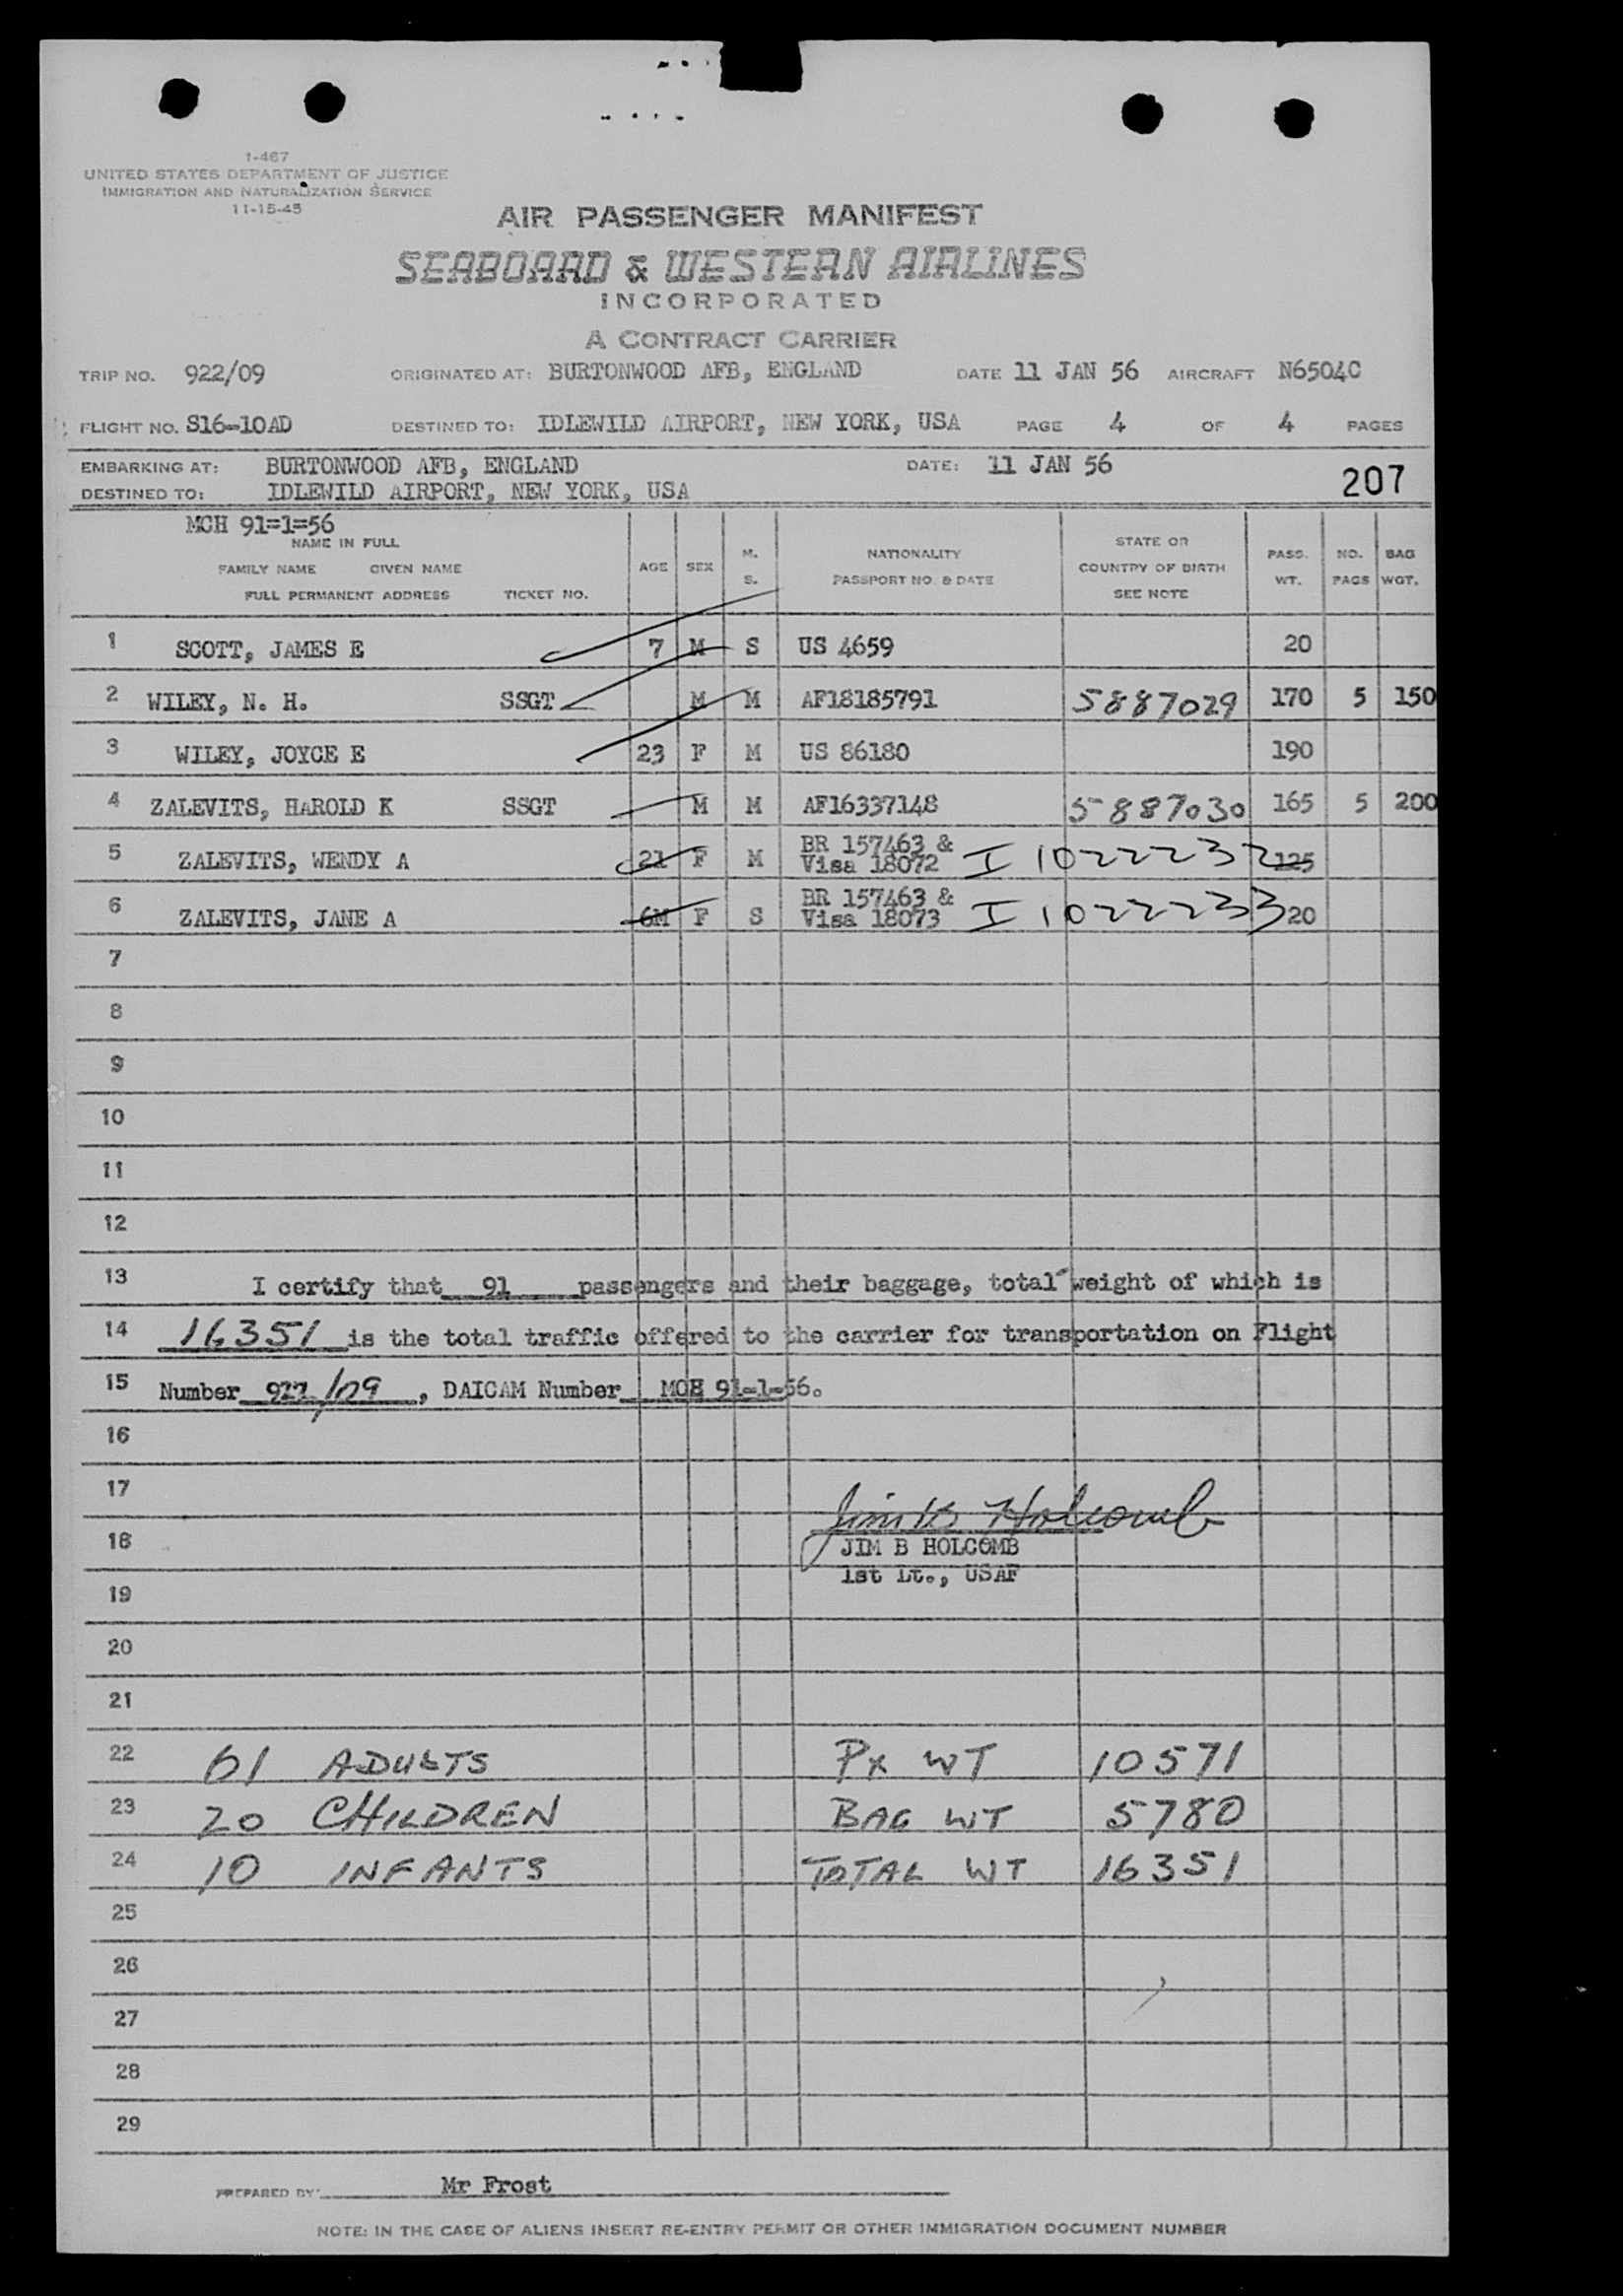 1-467
UNITED STATES DEPARTMENT OF JUSTICE
IMMIGRATION AND NATURALIZATION SERVICE
11-15-45
AIR PASSENGER MANIFEST
SEABOARD & WESTERN AIRLINES
INCORPORATED
A CONTRACT CARRIER
TRIP NO. 922/09 ORIGINATED AT: BURTONWOOD AFB, ENGLAND DATE 11 JAN 56 AIRCRAFT N6504C
FLIGHT NO. S16-10AD DESTINED TO: IDLEWILD AIRPORT, NEW YORK, USA PAGE 4 OF 4 PAGES
EMBARKING AT: BURTONWOOD AFB, ENGLAND DATE: 11 JAN 56
DESTINED TO: IDLEWILD AIRPORT, NEW YORK, USA 207
MCH 91=1=56
NAME IN FULL
FAMILY NAME GIVEN NAME
FULL PERMANENT ADDRESS TICKET NO. AGE SEX M. S. NATIONALITY PASSPORT NO. & DATE STATE OR COUNTRY OF BIRTH SEE NOTE PASS. WT. NO. PAGS BAG WGT.
1 SCOTT, JAMES E 7 M S US 4659 20
2 WILEY, N. H. SSGT M M AF18185791 5887029 170 5 150
3 WILEY, JOYCE E 23 F M US 86180 190
4 ZALEVITS, HAROLD K SSGT M M AF16337148 5887030 165 5 200
5 ZALEVITS, WENDY A 21 F M BR 157463 & Visa 18072 I 1022232 125
6 ZALEVITS, JANE A 6M F S BR 157463 & Visa 18073 I 1022233 20
7
8
9
10
11
12
13 I certify that 91 passengers and their baggage, total weight of which is
14 16351 is the total traffic offered to the carrier for transportation on Flight
15 Number 922/09, DAICAM Number MCH 91-1-56.
16
17
18 JIM B HOLCOMB
Jim B Holcomb
19 1st Lt., USAF
20
21
22 61 ADULTS PX WT 10571
23 20 CHILDREN BAG WT 5780
24 10 INFANTS TOTAL WT 16351
25
26
27
28
29
PREPARED BY: Mr Frost
NOTE: IN THE CASE OF ALIENS INSERT RE-ENTRY PERMIT OR OTHER IMMIGRATION DOCUMENT NUMBER